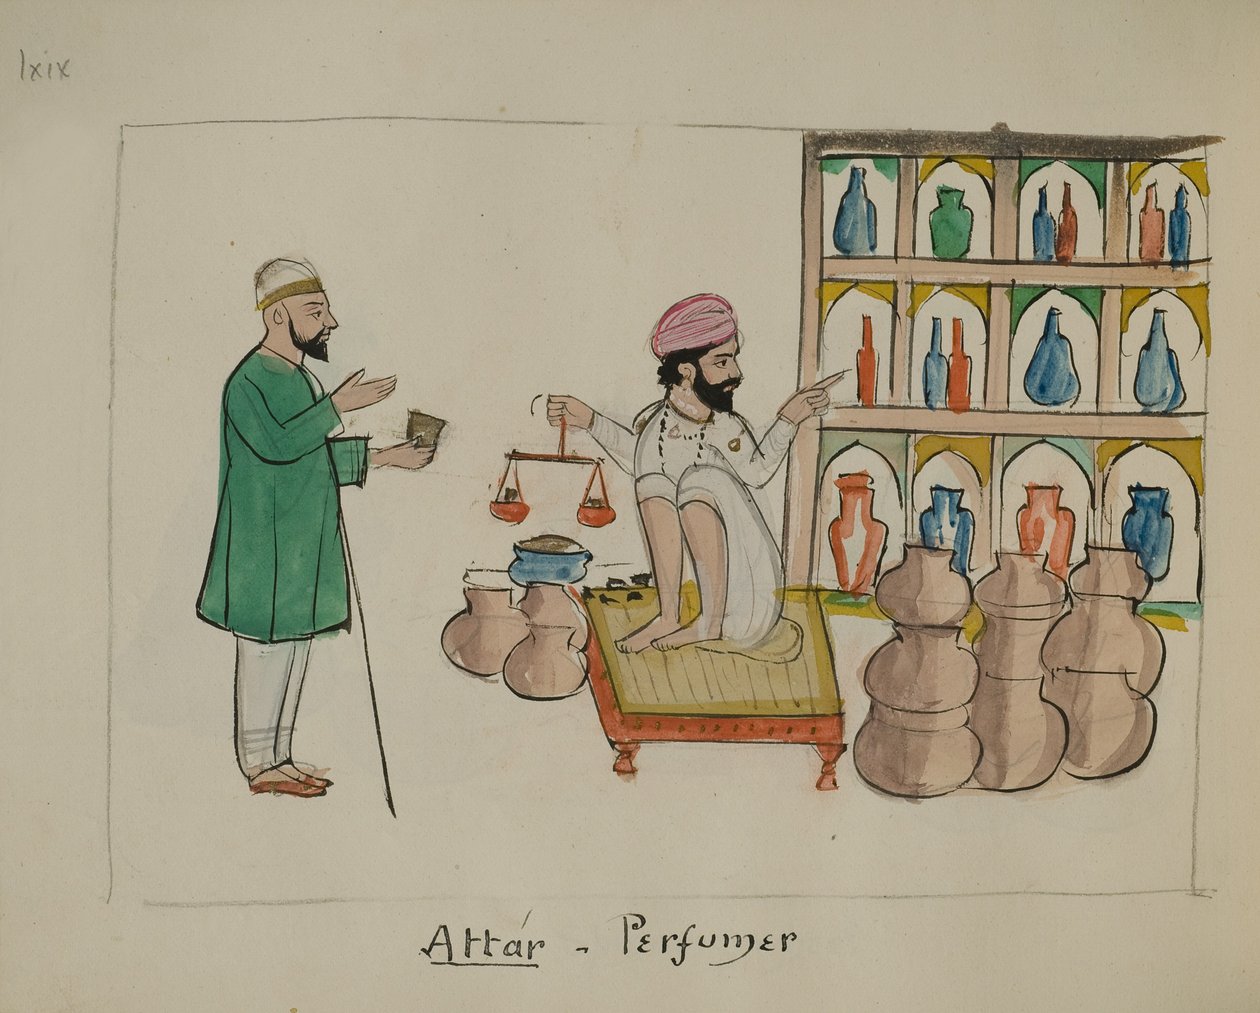 lxix
Attár - Perfumer